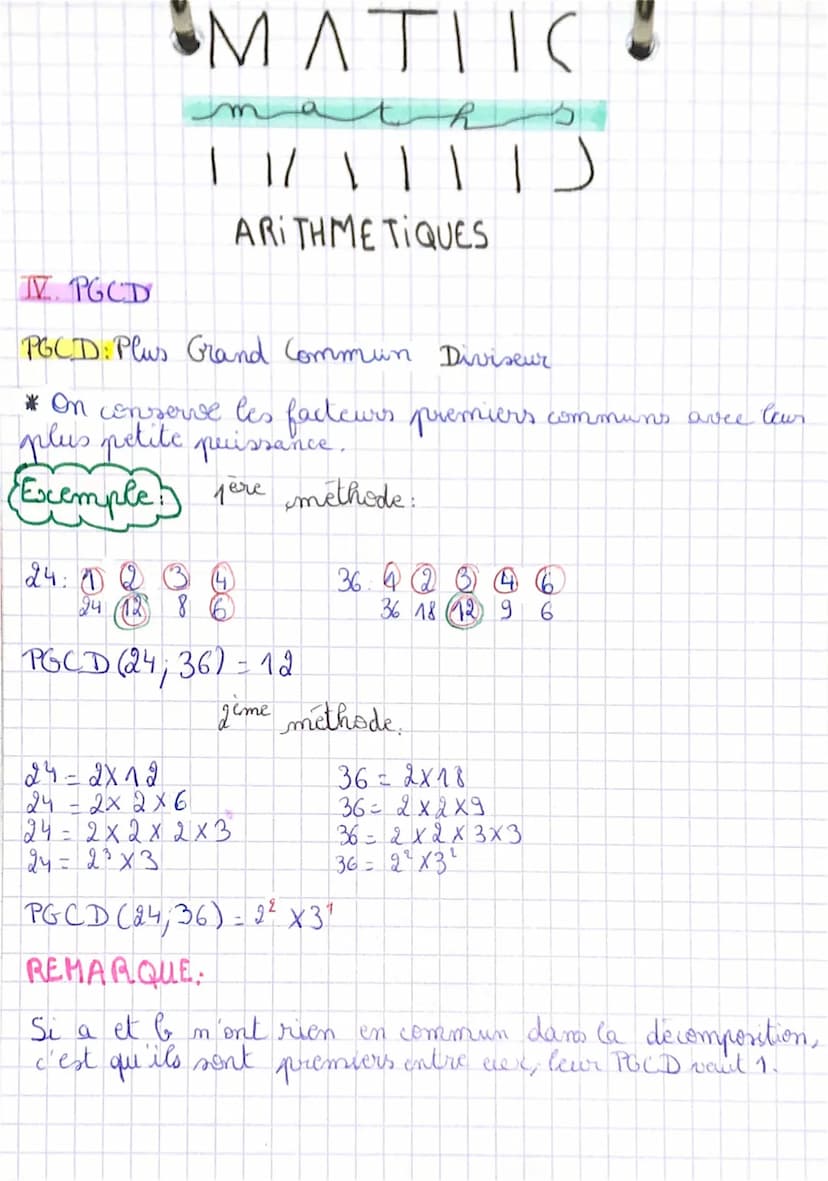 maths
ARiTHMETiQUES
IV. PGCD
PGCD: Plus Grand Commun Diviseur
* On conserve les facteurs premiers communs avec leur
plus petite puissance.
Exemple: 1ère méthode:
24: 1 2 3 4 36: 1 2 3 4 6
24 12 8 6 36 18 12 9 6
PGCD(24; 36) = 12
2ème méthode.
24 = 2×12 36 = 2×18
24 = 2×2×6 36 = 2×2×9
24 = 2×2×2×3 36 = 2×2×3×3
24 = 2³×3 36 = 2²×3²
PGCD(24;36) = 2² ×3¹
REMARQUE:
Si a et b n'ont rien en commun dans la décomposition,
c'est qu'ils sont premiers entre eux, leur PGCD vaut 1.